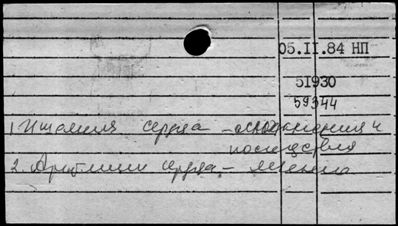 05.II.84 НП
51930
59344
1. Ишемия сердца - осложнения и
последствия
2. Аритмии сердца - лечение